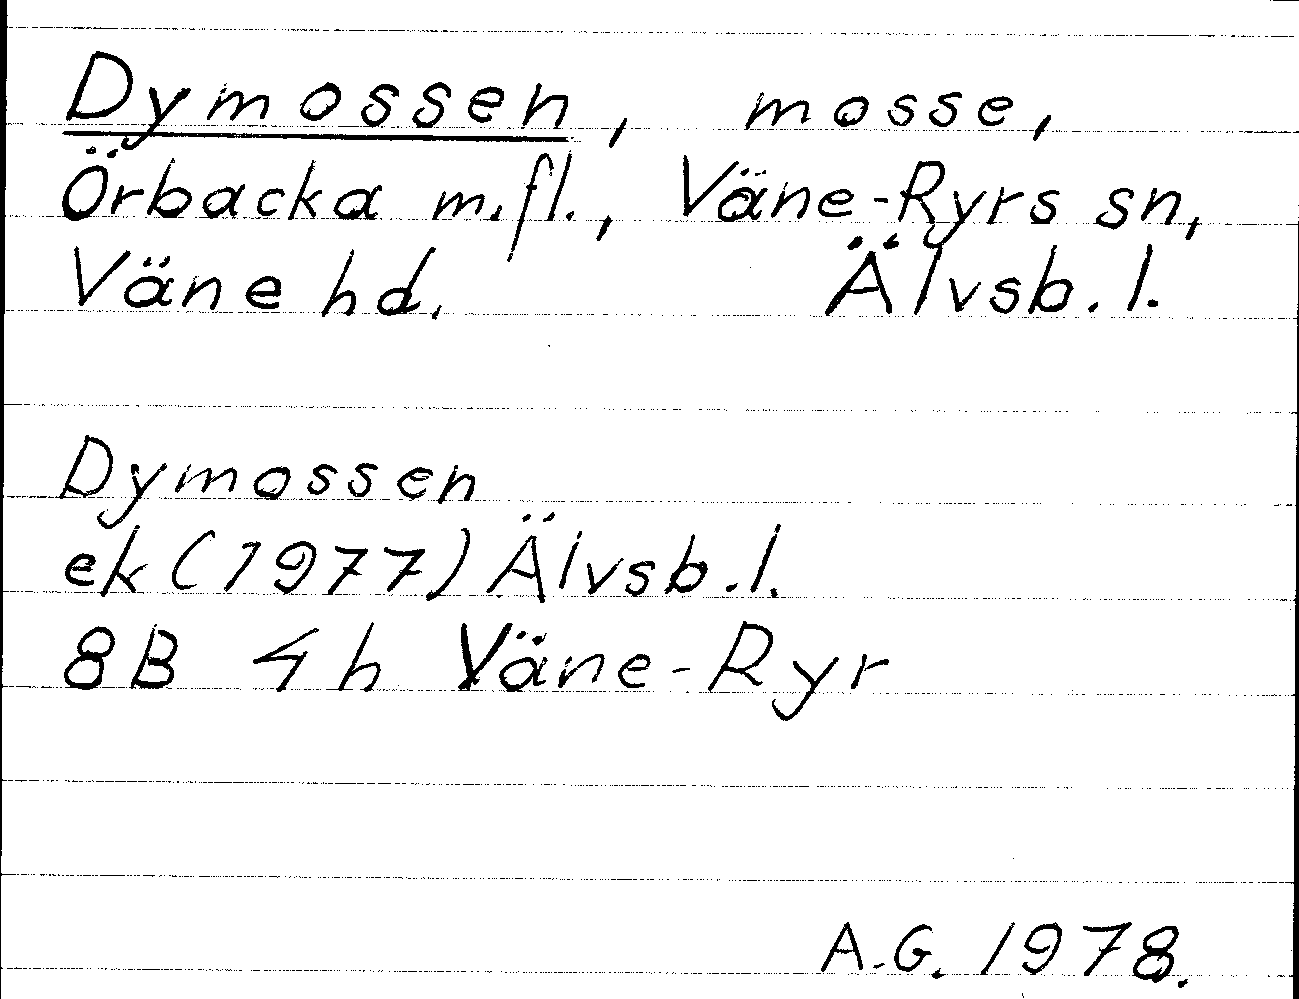 Dymossen, mosse,
Örbacka m.fl., Väne-Ryrs sn,
Väne hd. Älvsb.l.
Dymossen
ek (1977) Älvsb.l.
8B 4h Väne-Ryr
A.G. 1978.